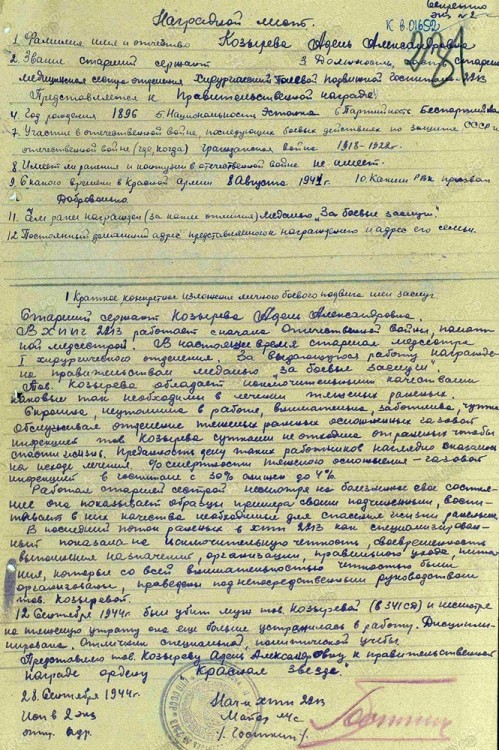 Секретно
экз № 2
К В 01652
Наградной лист.
1. Фамилия имя и отчество Козырева Адель Александровна
2. Звание старший сержант 3 Должность, часть старшая
медицинская сестра отделения хирургический Полевой подвижной Госпиталь 2213
Представляется к Правительственной награде
4. Год рождения 1896 5. Национальность Эстонка 6 Партийность Беспартийная
7. Участие в отечественной войне, последующих боевых действиях по защите СССР и
отечественной войне (где, когда) гражданская война 1918-1922г.
8 Имеет ли ранения и контузии в отечественной войне не имеет.
9 С какого времени в Красной Армии 8 Августа 1941г. 10. Каким РВК призван
Добровольно.
11. Чем ранее награжден (за какие отличия) медалью "За боевые заслуги".
12 Постоянный домашний адрес представляемого к награждению и адрес его семьи.
I Краткое конкретное изложение личного боевого подвига или заслуг.
Старший сержант Козырева Адель Александровна.
В ХППГ 2213 работает с начала Отечественной войны, палат-
ной медсестрой. В настоящее время старшая медсестра
I хирургического отделения. За выдающуюся работу награжде-
на правительством медалью "За боевые заслуги".
Тов. Козырева обладает исключительными качествами
которые так необходимы в лечении тяжелых раненых.
Скромна, неутомима в работе, внимательна, заботлива, чутка
Обслуживая отделение тяжелых раненых осложненных газовой
инфекцией тов Козырева сутками не отходила от раненых чтобы
спасти жизнь. Преданность делу таких работников наглядно сказалась
на исходе лечения. % смертности тяжелого осложнения - газовой
инфекцией в госпитале с 30% снижен до 4%.
Работая старшей сестрой несмотря на болезненное свое состоя-
ние она показывает образцы примера своим подчиненным, воспи-
тывает в них качества необходимые для спасения жизни раненых.
В последний поток раненых в хппг 2213 как специализирован-
ный показала на исключительную четкость, своевременность
выполнения назначений, организации, правильного ухода, пита-
ния, которые со всей внимательностью четкостью были
организованы, проведены под непосредственным руководством
тов. Козыревой.
12 Сентября 1944г. был убит муж тов Козыревой (в 341 сд) и несмотря
на тяжелую утрату она еще больше устремилась в работу. Дисципли-
нирована. Отличник специальной, политической учебы.
Представляю тов. Козыреву Адель Александровну к правительственной
награде ордену "Красная Звезда".
28. Сентября 1944г. Нач-к хппг 2213
Исп в 2 экз Майор м/с
отп. адр.